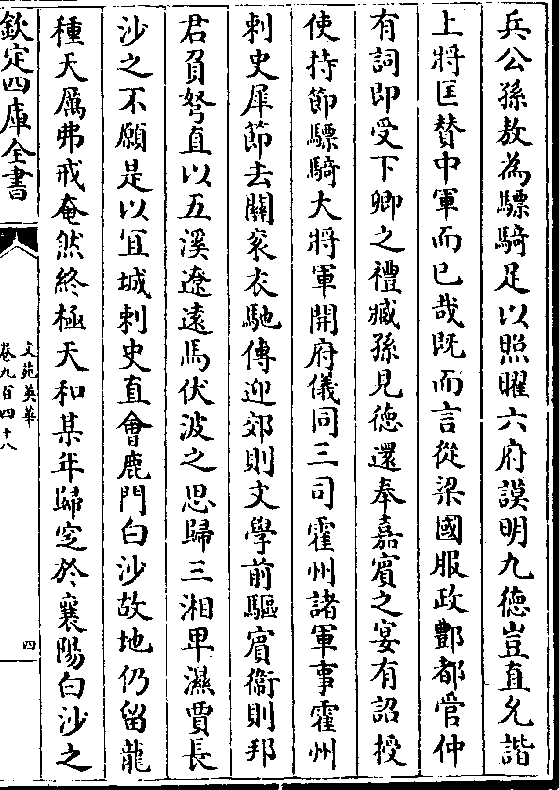 兵公孫敖為驃騎足以照曜六府謨明九德豈直允諧
上將匡賛中軍而已哉既而言從梁國服政酆都管仲
有詞即受下卿之禮臧孫見德還奉嘉賓之宴有詔授
使持節驃騎大將軍開府儀同三司霍州諸軍事霍州
刺史犀節去關衮衣馳傳迎郊則文學前驅賓衞則邦
君負弩直以五溪遼遠馬伏波之思歸三湘卑濕賈長
沙之不願是以宜城刺史直會鹿門白沙故地仍留龍
種天厲弗戒奄然終極天和某年歸窆於襄陽白沙之
欽定四庫全書
文苑英華
卷九百四十八
四